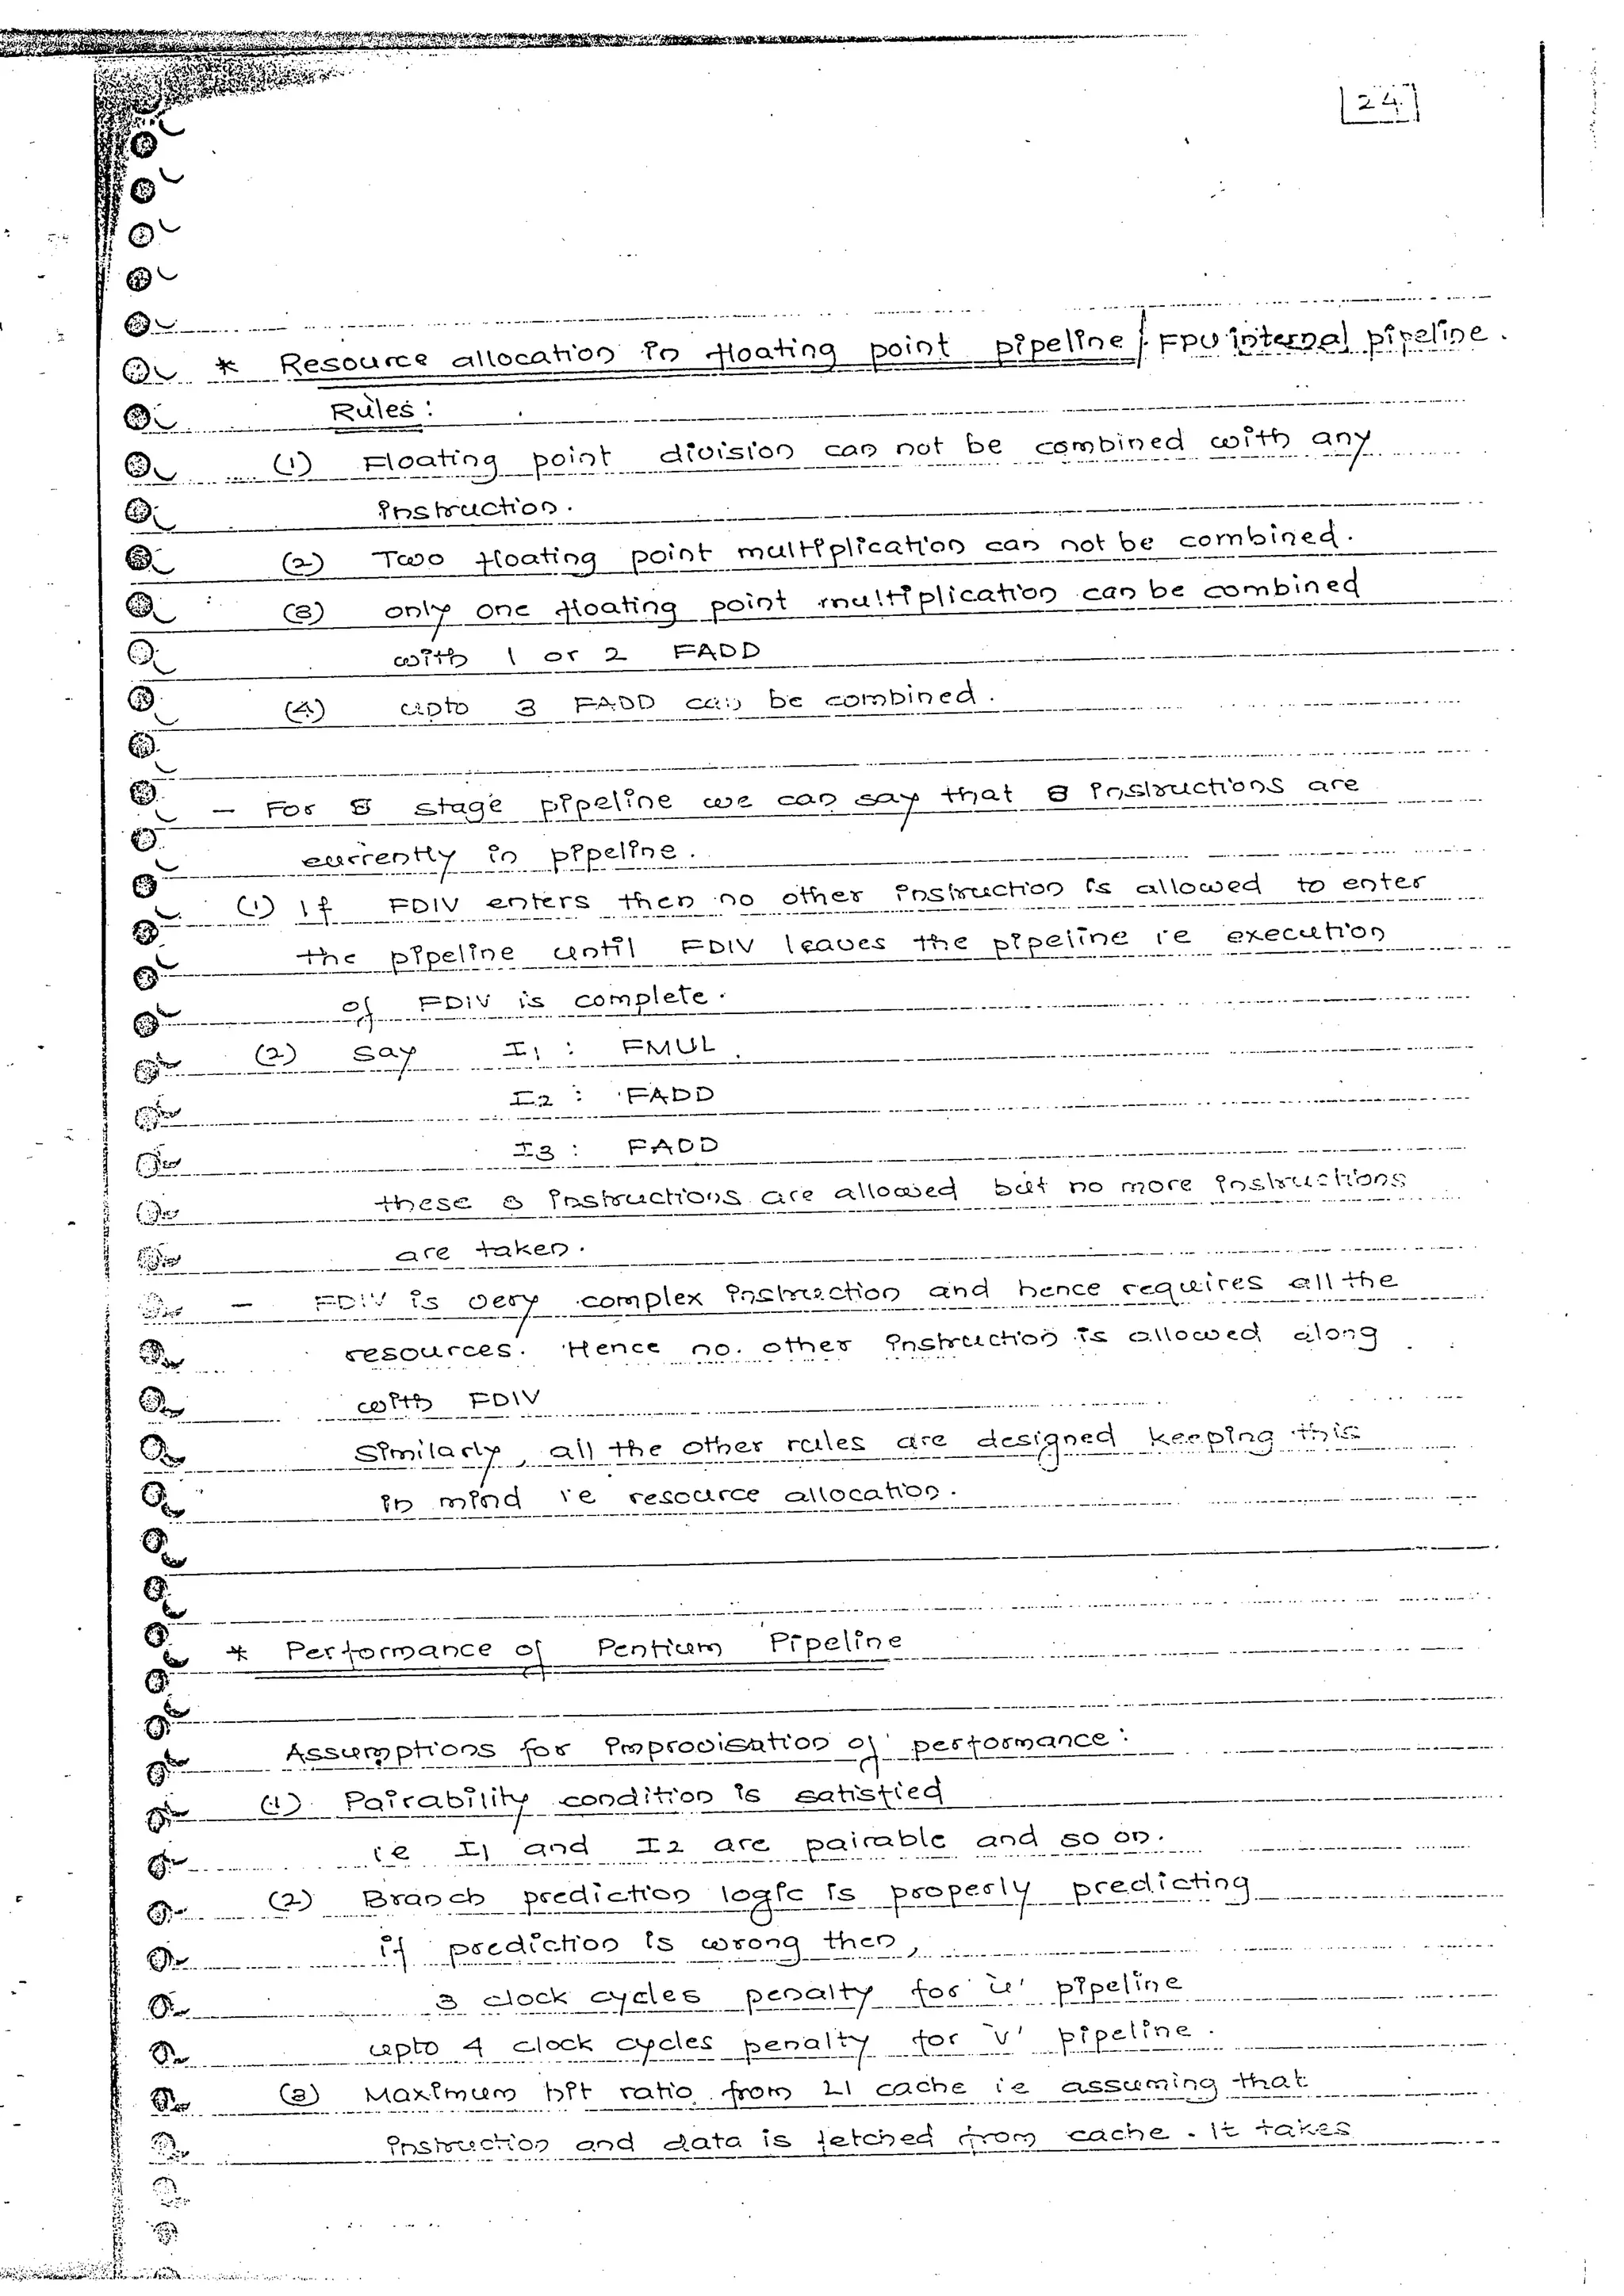 24.
* Resource allocation in floating point pipeline / FPU internal pipeline.
Rules:
(1) Floating point division can not be combined with any
instruction.
(2) Two floating point multiplication can not be combined.
(3) only one floating point multiplication can be combined
with 1 or 2 FADD
(4) upto 3 FADD can be combined.
- For 8 stage pipeline we can say that 8 instructions are
currently in pipeline.
(1) If FDIV enters then no other instruction is allowed to enter
the pipeline until FDIV leaves the pipeline ie execution
of FDIV is complete.
(2) Say I1 : FMUL
I2 : FADD
I3 : FADD
these 3 instructions are allowed but no more instructions
are taken.
- FDIV is very complex instruction and hence requires all the
resources. Hence no. other instruction is allowed along
with FDIV
Similarly, all the other rules are designed keeping this
in mind ie resource allocation.
* Performance of Pentium Pipeline
Assumptions for improvisation of performance:
(1) Pairability condition is satisfied
ie I1 and I2 are pairable and so on.
(2) Branch prediction logic is properly predicting
if prediction is wrong then,
3 clock cycles penalty for 'u' pipeline
upto 4 clock cycles penalty for 'v' pipeline.
(3) Maximum hit ratio from L1 cache ie assuming that
instruction and data is fetched from cache. It takes